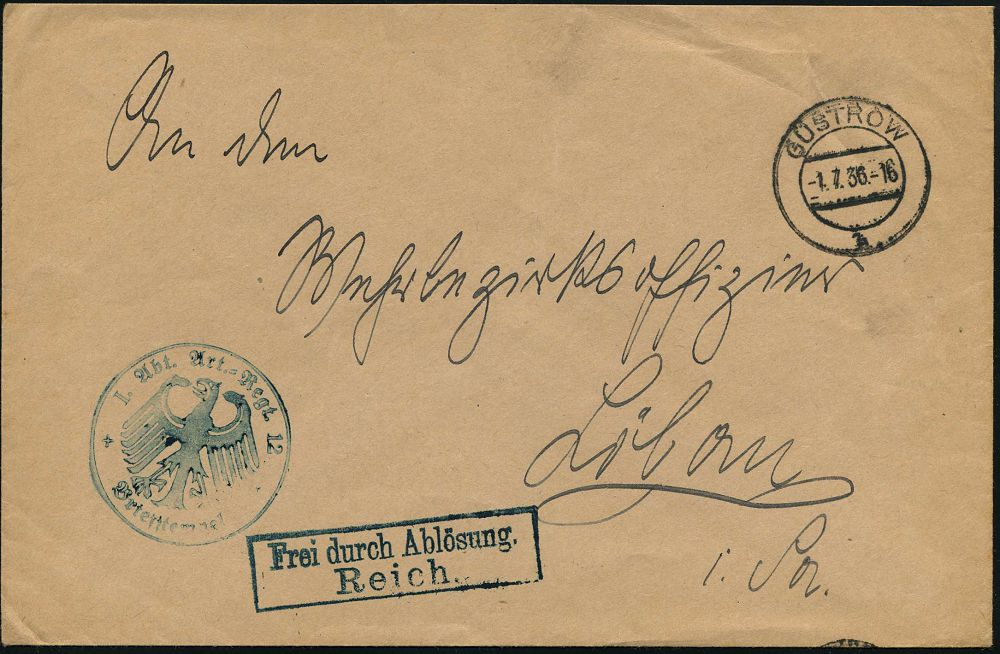 An den
Wehrbezirksoffizier
Löbau
i. Sa.
GÜSTROW
-1.7.36.-16
h
I. Abt. Art.-Regt. 12
Briefstempel
Frei durch Ablösung.
Reich.